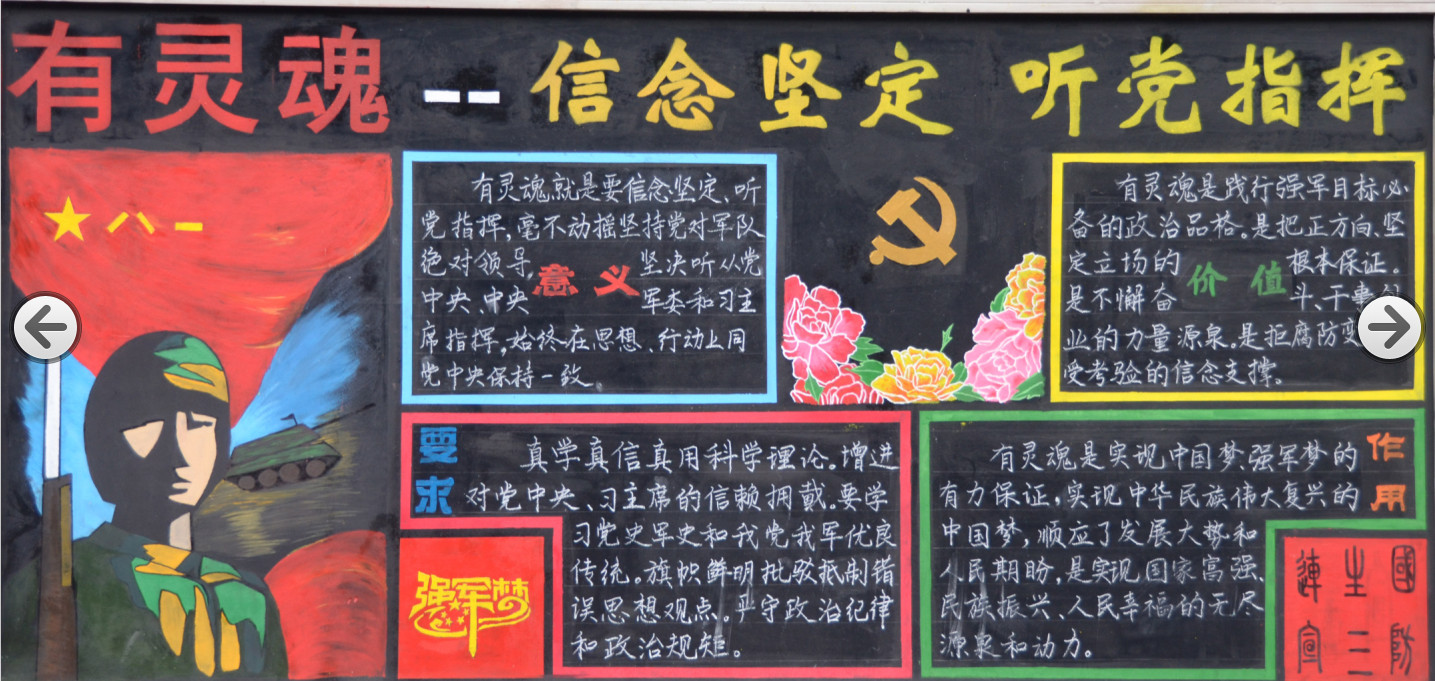 有灵魂--信念坚定 听党指挥
八一
有灵魂就是要信念坚定、听
党指挥,毫不动摇坚持党对军队
绝对领导,坚决听从党
中央、中央军委和习主
席指挥,始终在思想、行动上同
党中央保持一致。
意义
有灵魂是践行强军目标必
备的政治品格。是把正方向、坚
定立场的根本保证。
是不懈奋斗、干事
业的力量源泉。是拒腐防变
受考验的信念支撑。
价值
要求
真学真信真用科学理论。增进
对党中央、习主席的信赖拥戴。要学
习党史军史和我党我军优良
传统。旗帜鲜明批驳抵制错
误思想观点。严守政治纪律
和政治规矩。
强军梦
有灵魂是实现中国梦、强军梦的
有力保证,实现中华民族伟大复兴的
中国梦,顺应了发展大势和
人民期盼,是实现国家富强、
民族振兴、人民幸福的无尽
源泉和动力。
作用
國防
生二
連宣